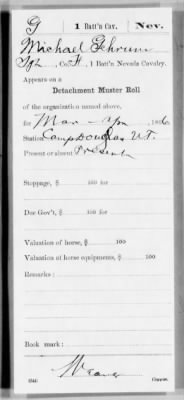 G | 1 Batt'n Cav. | Nev.
Michael Ghrum
Sgt, Co. H, 1 Batt'n Nevada Cavalry.
Appears on a
Detachment Muster Roll
of the organization named above,
for Mar - Apr, 1866
Station Camp Douglas U.T.
Present or absent Present
Stoppage, $ 100 for
Due Gov't, $ 100 for
Valuation of horse, $ 100
Valuation of horse equipments, $ 100
Remarks:
Book mark:
Copyist.